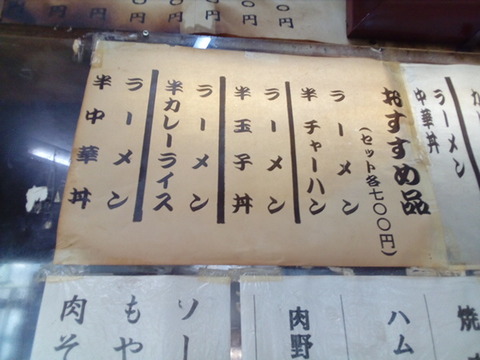 おすすめ品
(セット各七〇〇円)
ラーメン
半チャーハン
ラーメン
半玉子丼
ラーメン
半カレーライス
ラーメン
半中華丼
ラーメン
中華丼
ハム
肉野
ソー
もや
肉そ